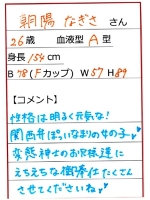 朝陽 なぎさ さん
26歳 血液型 A型
身長/154cm
B 78(Fカップ) W57 H89
【コメント】
性格は明るく元気な!
関西弁ばっいなまりの女の子♪
変態紳士のお兄様達に
えちえちな御奉仕たくさん
させてくださいね♥